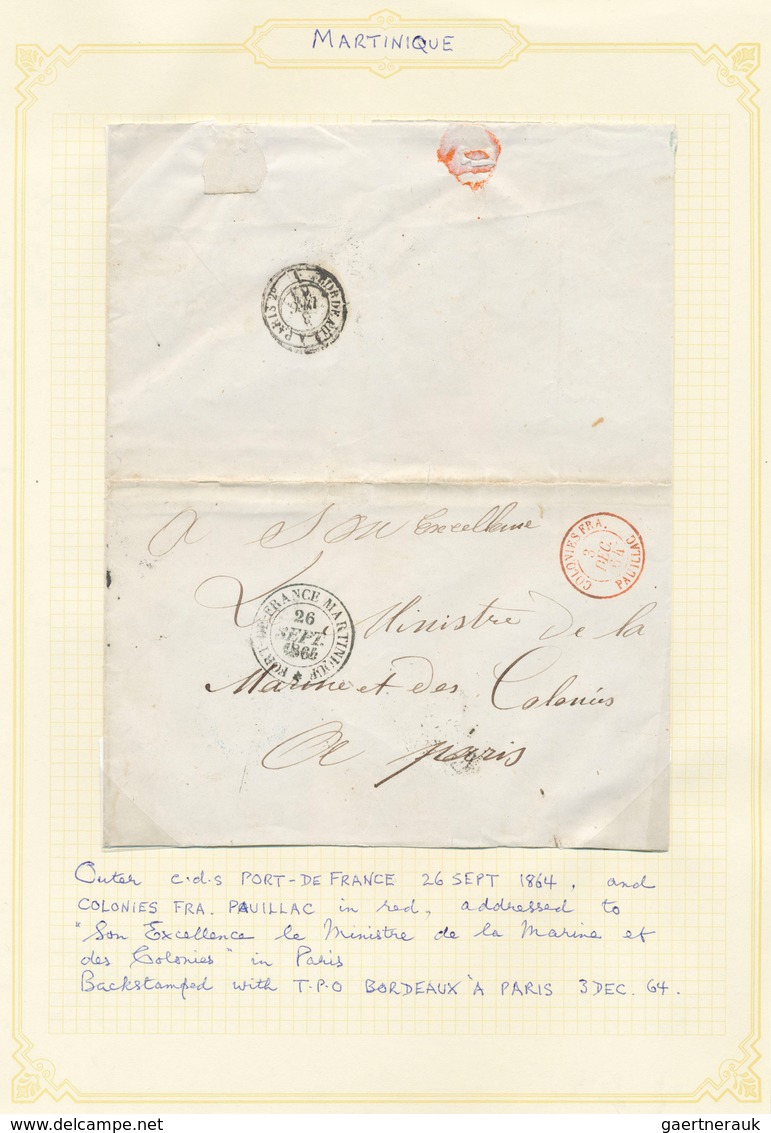 MARTINIQUE
BORDEAUX A PARIS 2°
3
DEC
64
A Son Excellence
COLONIES FRA. PAUILLAC
3
DEC.
64
FORT-DE-FRANCE MARTINIQUE
26
SEPT.
1864
Le Ministre de la
Marine et des Colonies
A Paris
Outer c.d.s PORT-DE FRANCE 26 SEPT 1864, and
COLONIES FRA. PAUILLAC in red, addressed to
"Son Excellence le Ministre de la Marine et
des Colonies" in Paris
Backstamped with T.P.O BORDEAUX A PARIS 3 DEC. 64.
delcampe.net
gaertnerauk